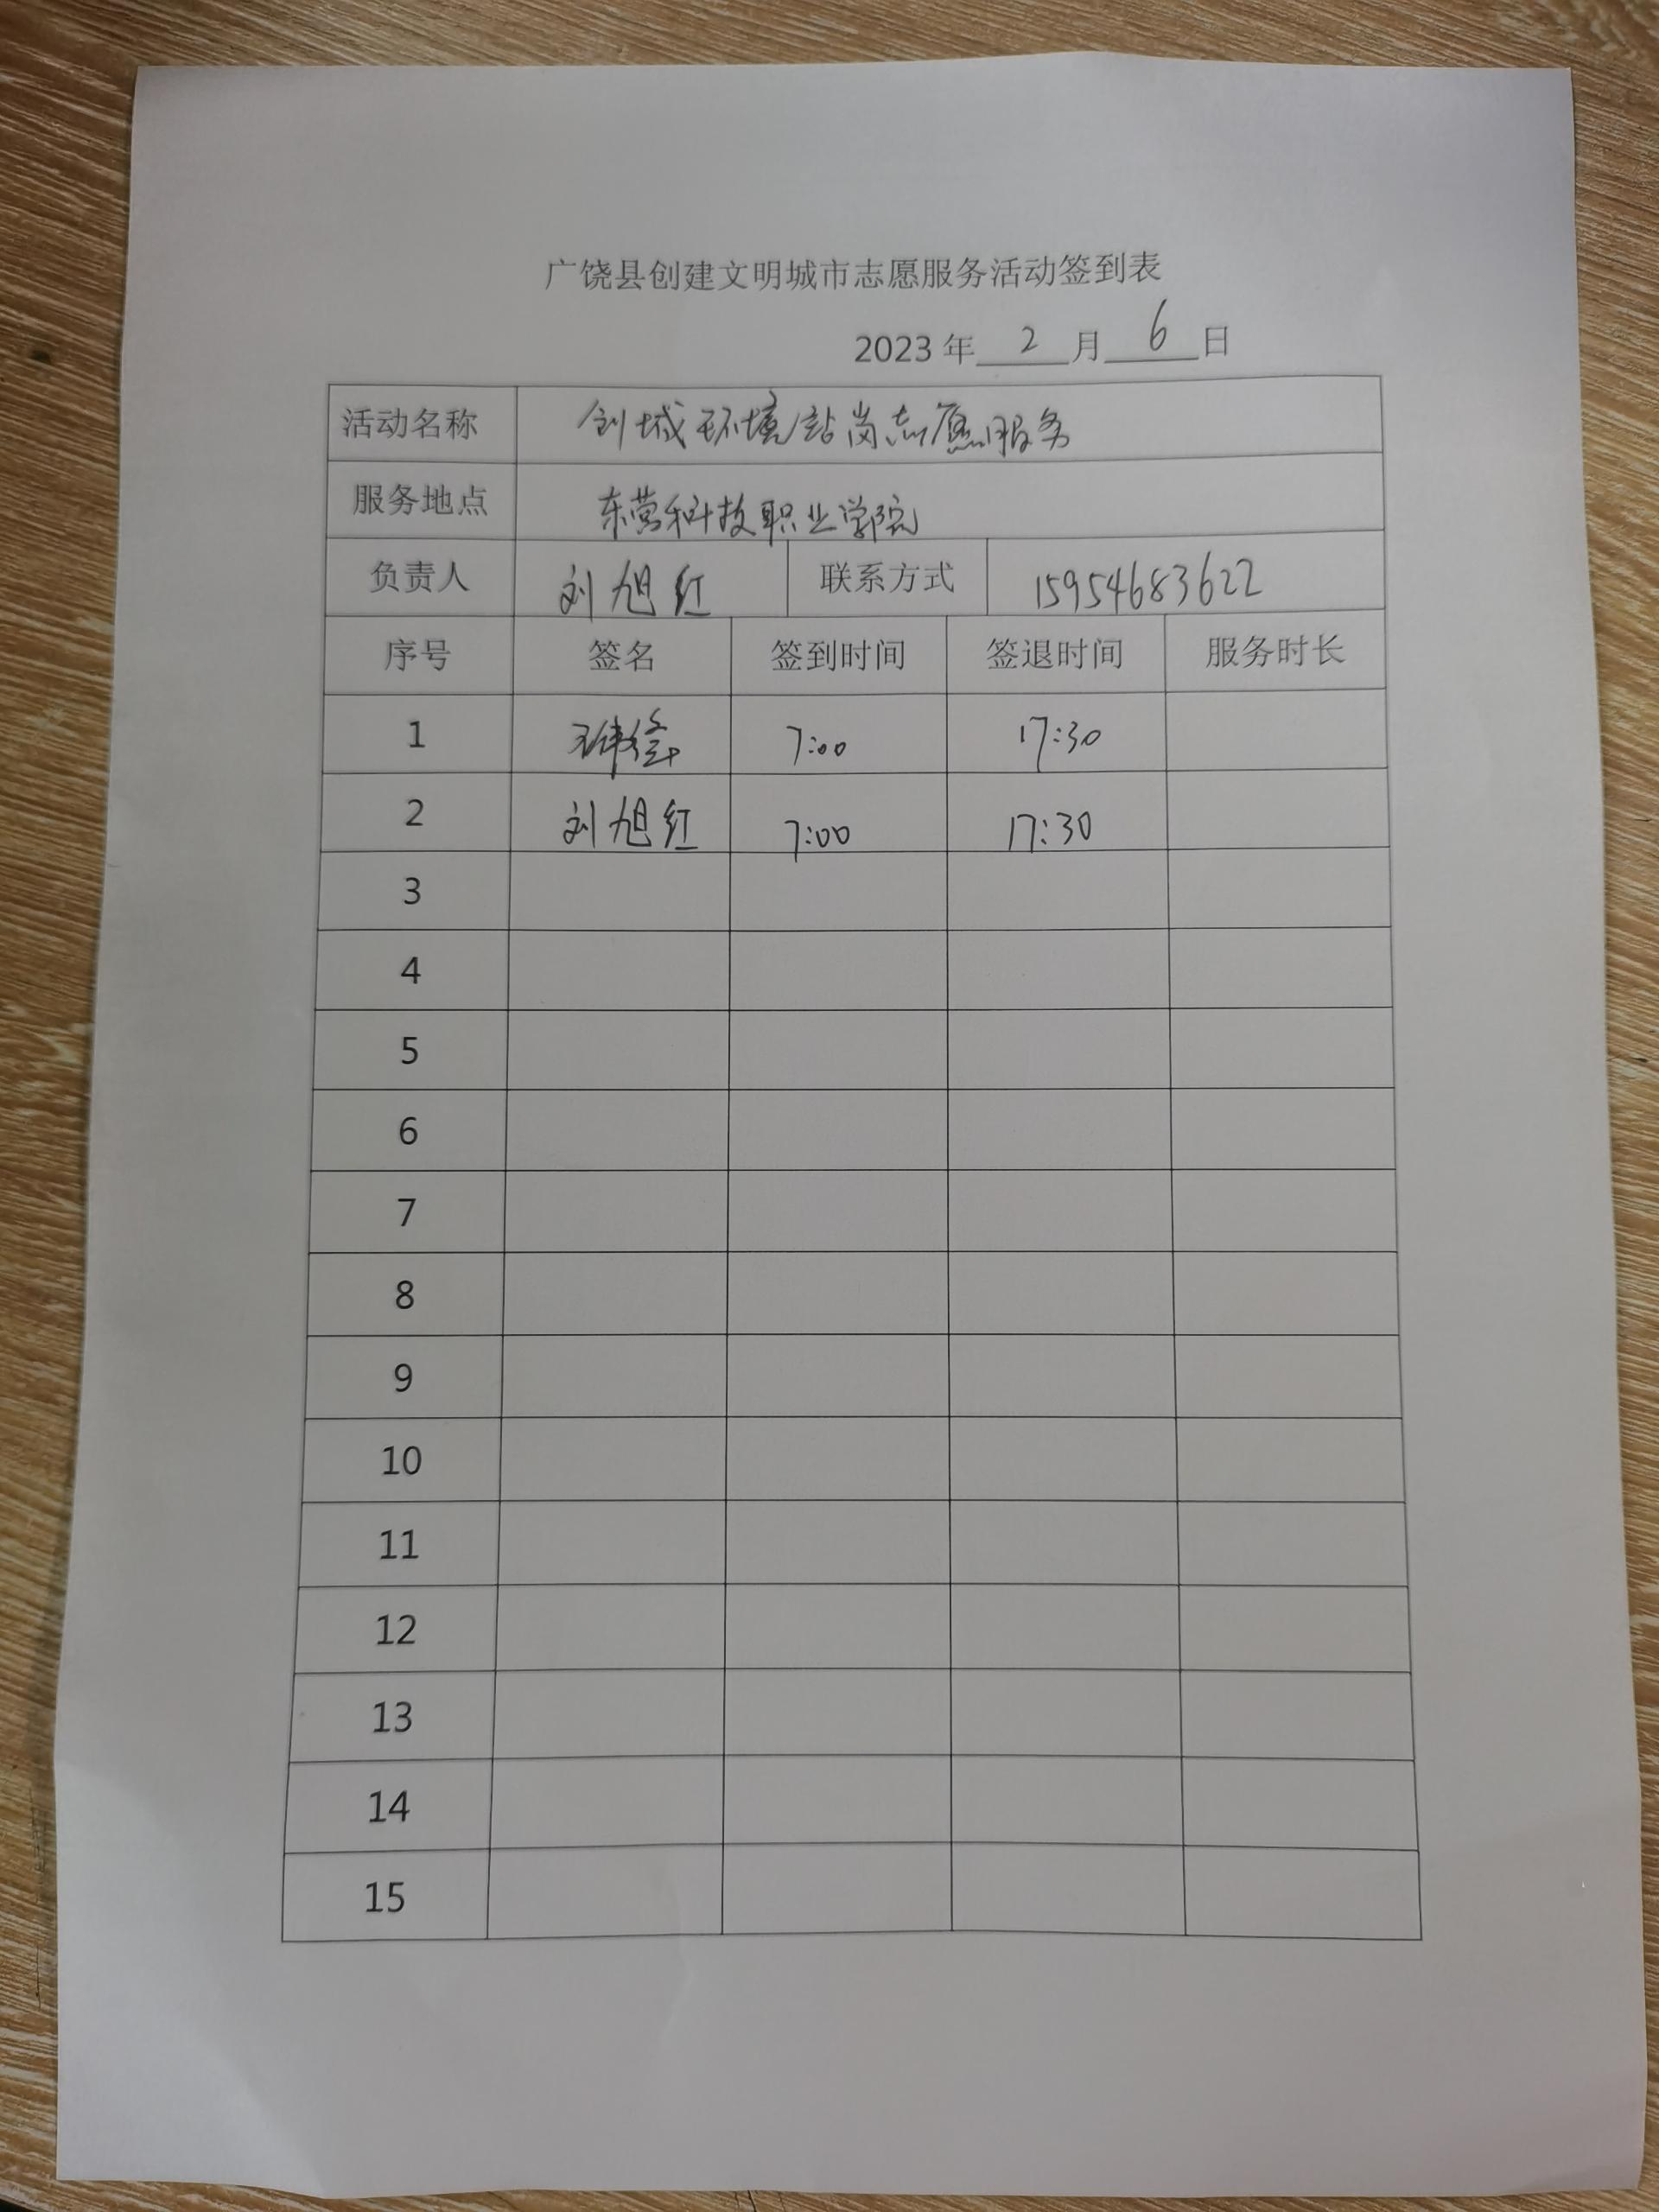 广饶县创建文明城市志愿服务活动签到表
2023 年 2 月 6 日
活动名称 创城环境站岗志愿服务
服务地点 东营科技职业学院
负责人 刘旭红 联系方式 15954683622
序号 签名 签到时间 签退时间 服务时长
1 7:00 17:30
2 刘旭红 7:00 17:30
3
4
5
6
7
8
9
10
11
12
13
14
15